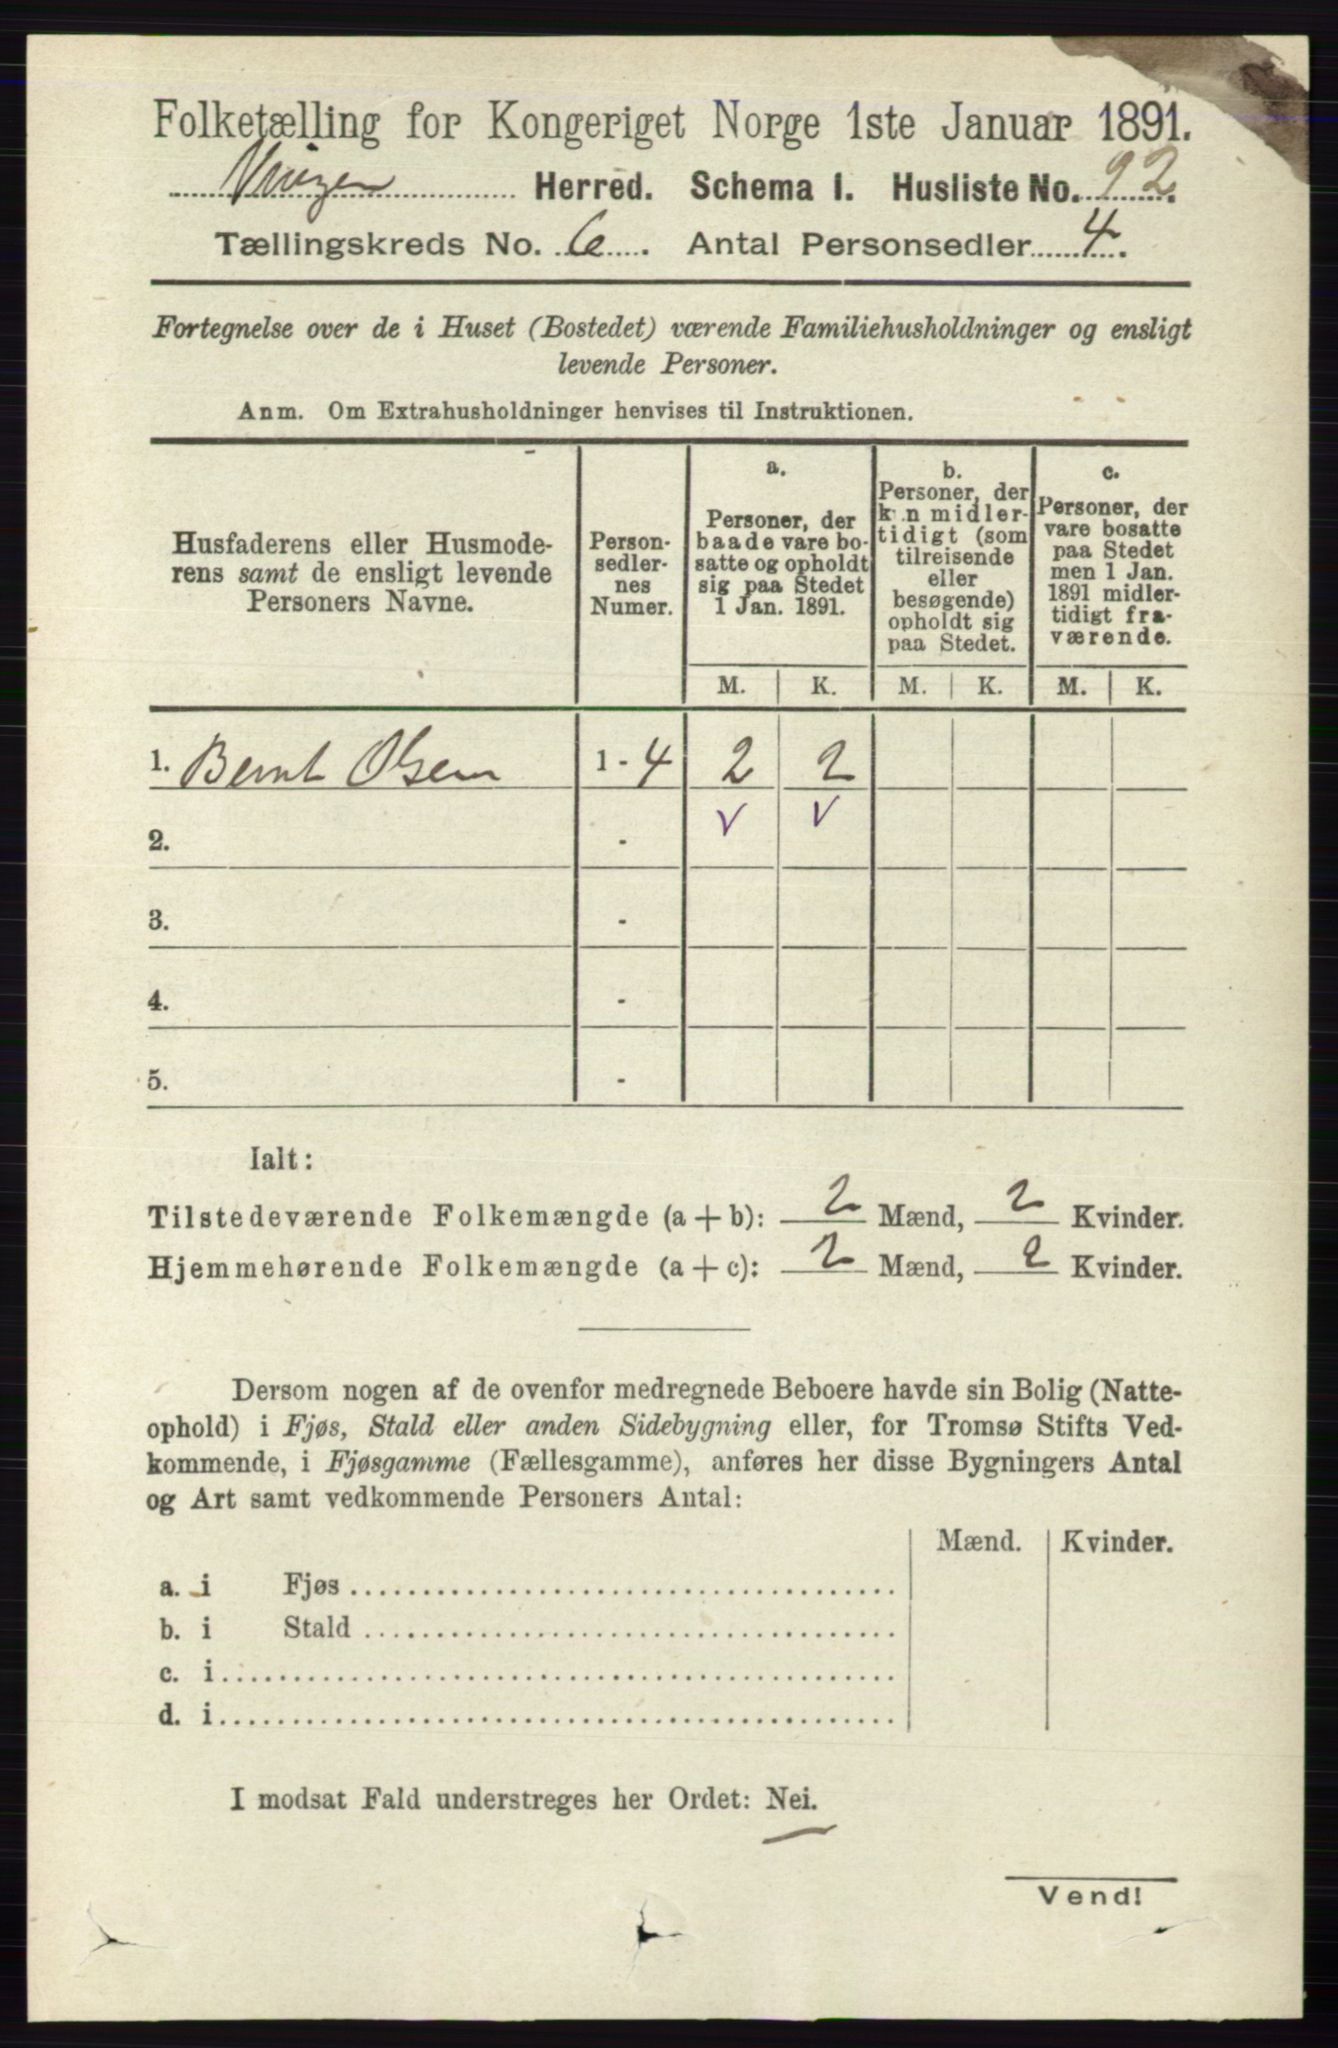 Folketælling for Kongeriget Norge 1ste Januar 1891.
Vinger Herred. Schema 1. Husliste No. 92.
Tællingskreds No. 6. Antal Personsedler 4.
Fortegnelse over de i Huset (Bostedet) værende Familiehusholdninger og ensligt
levende Personer.
Anm. Om Extrahusholdninger henvises til Instruktionen.
Husfaderens eller Husmode-
rens samt de ensligt levende
Personers Navne.
Person-
sedler-
nes
Numer.
a.
Personer, der
baade vare bo-
satte og opholdt
sig paa Stedet
1 Jan. 1891.
b.
Personer, der
kun midler-
tidigt (som
tilreisende
eller
besøgende)
opholdt sig
paa Stedet.
c.
Personer, der
vare bosatte
paa Stedet
men 1 Jan.
1891 midler-
tidigt fra-
værende.
M. K. M. K. M. K.
1. Bernt Olsen 1 - 4 2 2
V V
2. -
3. -
4. -
5. -
Ialt:
Tilstedeværende Folkemængde (a + b): 2 Mænd, 2 Kvinder.
Hjemmehørende Folkemængde (a + c): 2 Mænd, 2 Kvinder.
Dersom nogen af de ovenfor medregnede Beboere havde sin Bolig (Natte-
ophold) i Fjøs, Stald eller anden Sidebygning eller, for Tromsø Stifts Ved-
kommende, i Fjøsgamme (Fællesgamme), anføres her disse Bygningers Antal
og Art samt vedkommende Personers Antal:
Mænd. Kvinder.
a. i Fjøs
b. i Stald
c. i
d. i
I modsat Fald understreges her Ordet: Nei.
Vend!